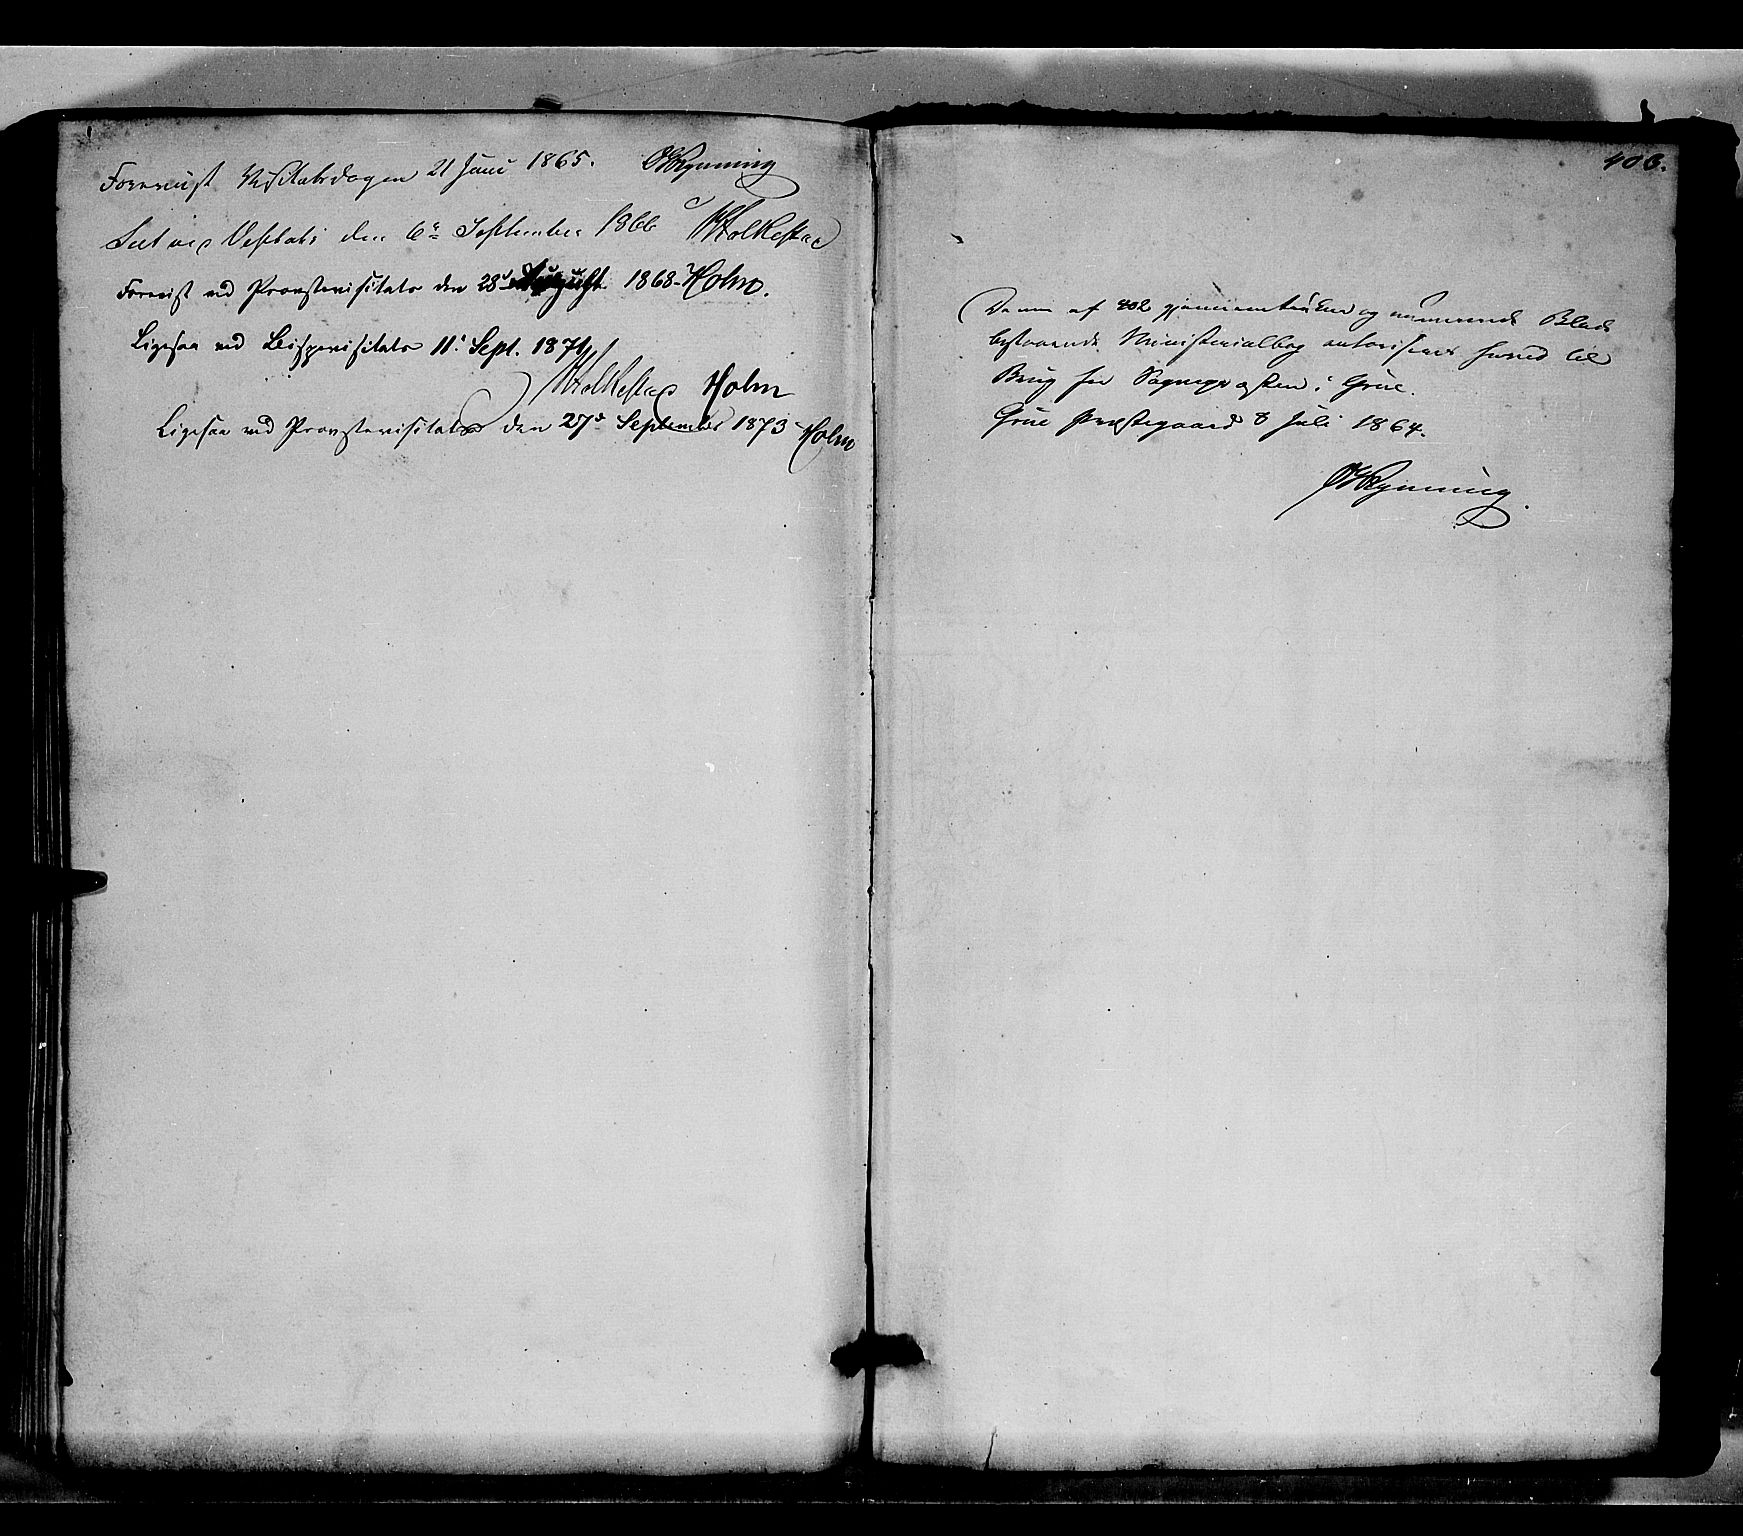 Forevist Visitatsdagen 21 Juni 1865. Rynning
Seet ved Visitats den 6te September 1866 Folkestad
Forevist ved Provstevisitats den 28de August 1868. Holm.
Ligesaa ved Bispevisitats 11. Sept. 1871
Folkestad Holm
Ligesaa ved Provstevisitats den 27de September 1873 Holm
403.
Denne af 402 gjennemtrukne og numerede Blade
bestaaende Ministerialbog autoriseres herved til
Brug for Sognepræsten i Grue.
Grue Præstegaard 8 Juli 1864.
Rynning.